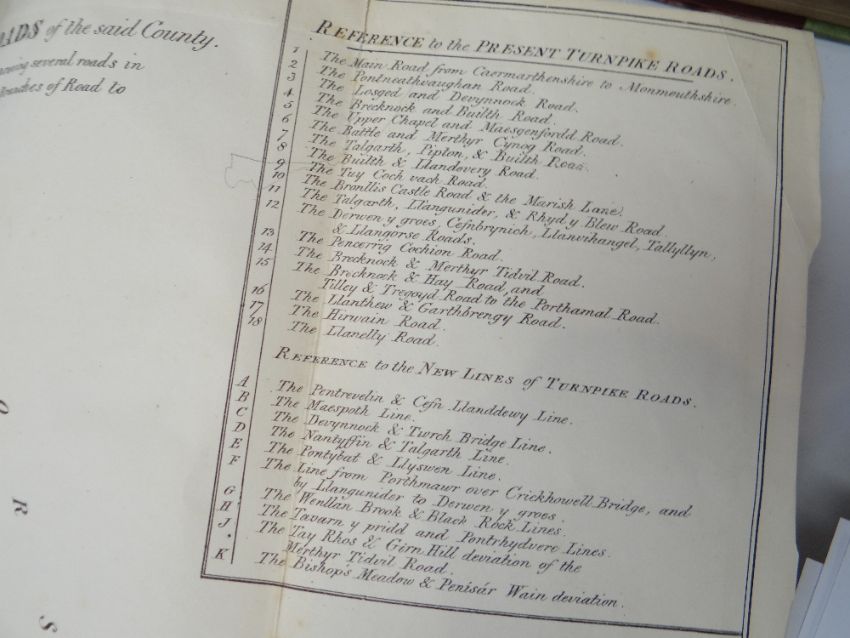 ROADS of the said County.
several roads in
Branches of Road to
REFERENCE to the PRESENT TURNPIKE ROADS.
1 The Main Road from Caermarthenshire to Monmouthshire.
2 The Pontneathvaughan Road.
3 The Losged and Devynnock Road.
4 The Brecknock and Builth Road.
5 The Upper Chapel and Maesgenfordd Road.
6 The Battle and Merthyr Cynog Road.
7 The Talgarth, Pipton, & Builth Road.
8 The Builth & Llandovery Road.
9 The Tuy Coch vach Road.
10 The Bronllis Castle Road & the Marish Lane.
11 The Talgarth, Llangunider, & Rhyd y Blew Road.
12 The Derwen y groes, Cefnbrynich, Llanvihangel, Tallyllyn,
& Llangorse Roads.
13 The Pencerrig Cochion Road.
14 The Brecknock & Merthyr Tidvil Road.
15 The Brecknock & Hay Road, and
Tilley & Tregoyd Road to the Porthamal Road.
16 The Llanthew & Garthbrengy Road.
17 The Hirwain Road.
18 The Llanelly Road.
REFERENCE to the NEW LINES of TURNPIKE ROADS.
A The Pentrevelin & Cefn Llanddewy Line.
B The Maespoth Line.
C The Devynnock & Twrch Bridge Line.
D The Nantyffin & Talgarth Line.
E The Pontybat & Llyswen Line.
F The Line from Porthmawr over Crickhowell Bridge, and
by Llangunider to Derwen y groes.
G The Wenllan Brook & Black Rock Lines.
H The Tavarn y pridd and Pontrhydvere Lines.
J The Tay Rhos & Girn Hill deviation of the
Merthyr Tidvil Road.
K The Bishop's Meadow & Penisár Wain deviation.
O
R
S